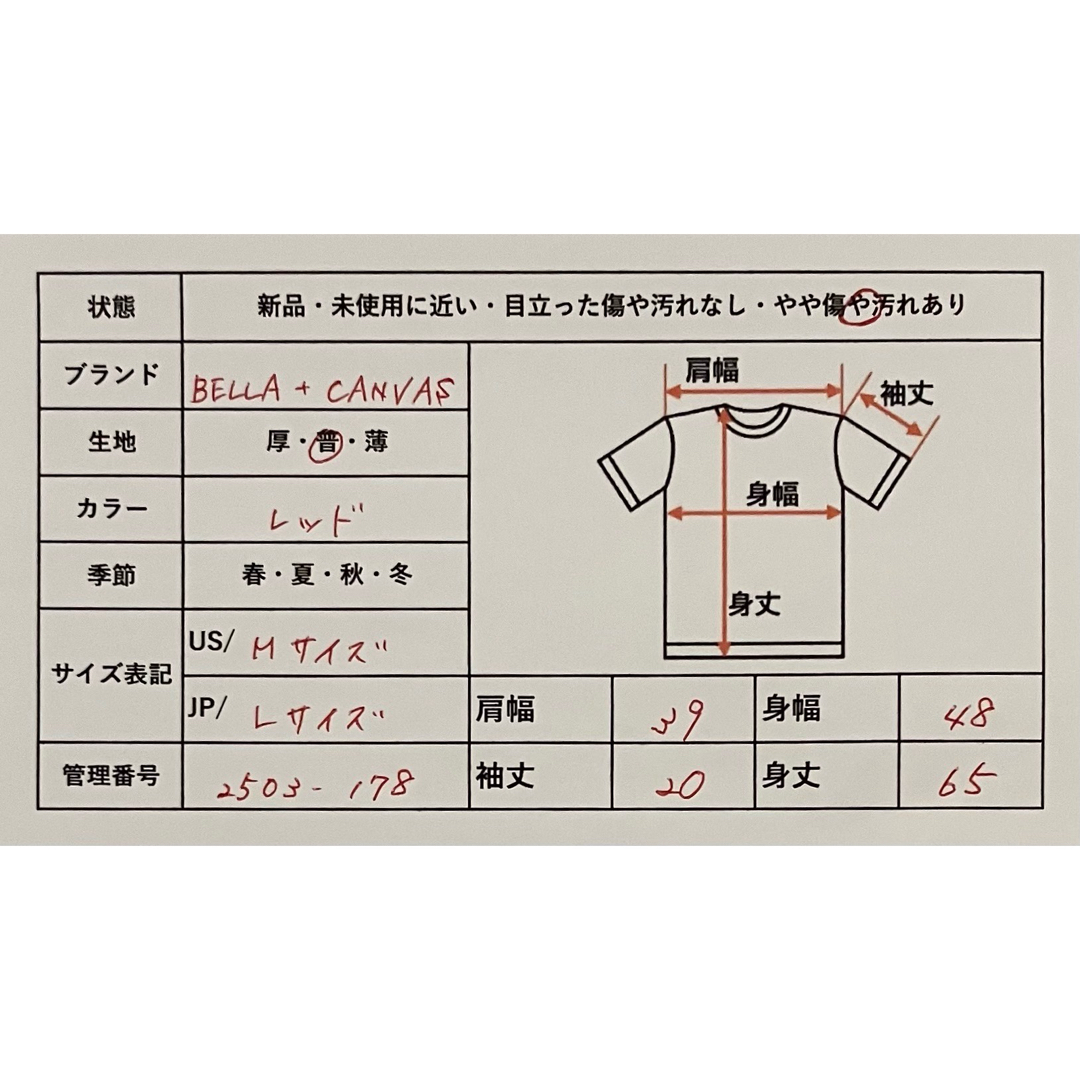 状態 新品・未使用に近い・目立った傷や汚れなし・やや傷や汚れあり
ブランド BELLA + CANVAS
生地 厚・普・薄
カラー レッド
季節 春・夏・秋・冬
サイズ表記 US/ Mサイズ
JP/ Lサイズ
管理番号 2503-178
肩幅
袖丈
身幅
身丈
肩幅 39 身幅 48
袖丈 20 身丈 65